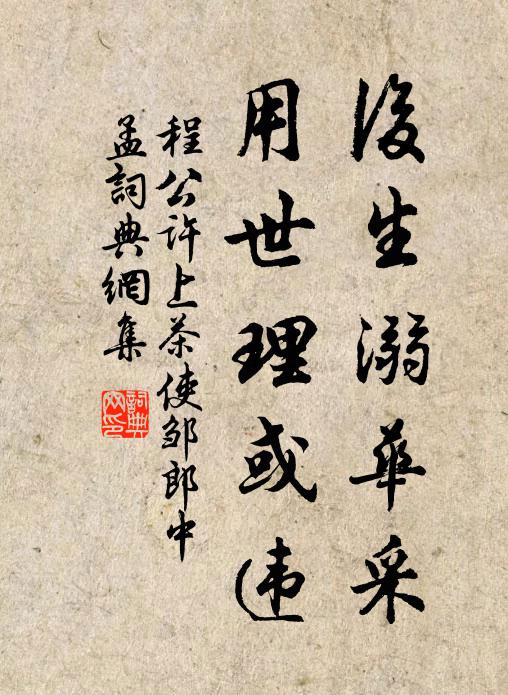 後生溺華采
用世理或违
程公許上茶使邹郎中
孟詞典網集
詞典网印